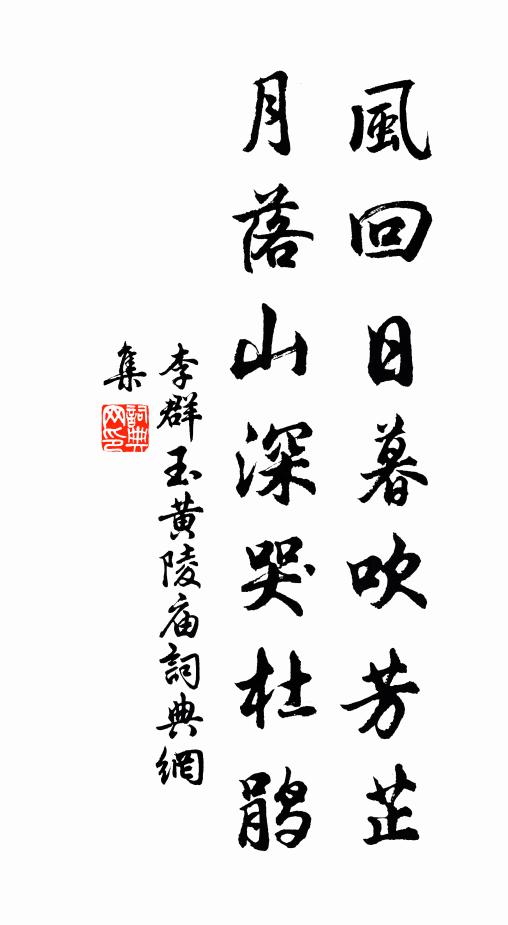 風回日暮吹芳芷
月落山深哭杜鹃
李群玉黄陵庙詞典網
集
詞典网印